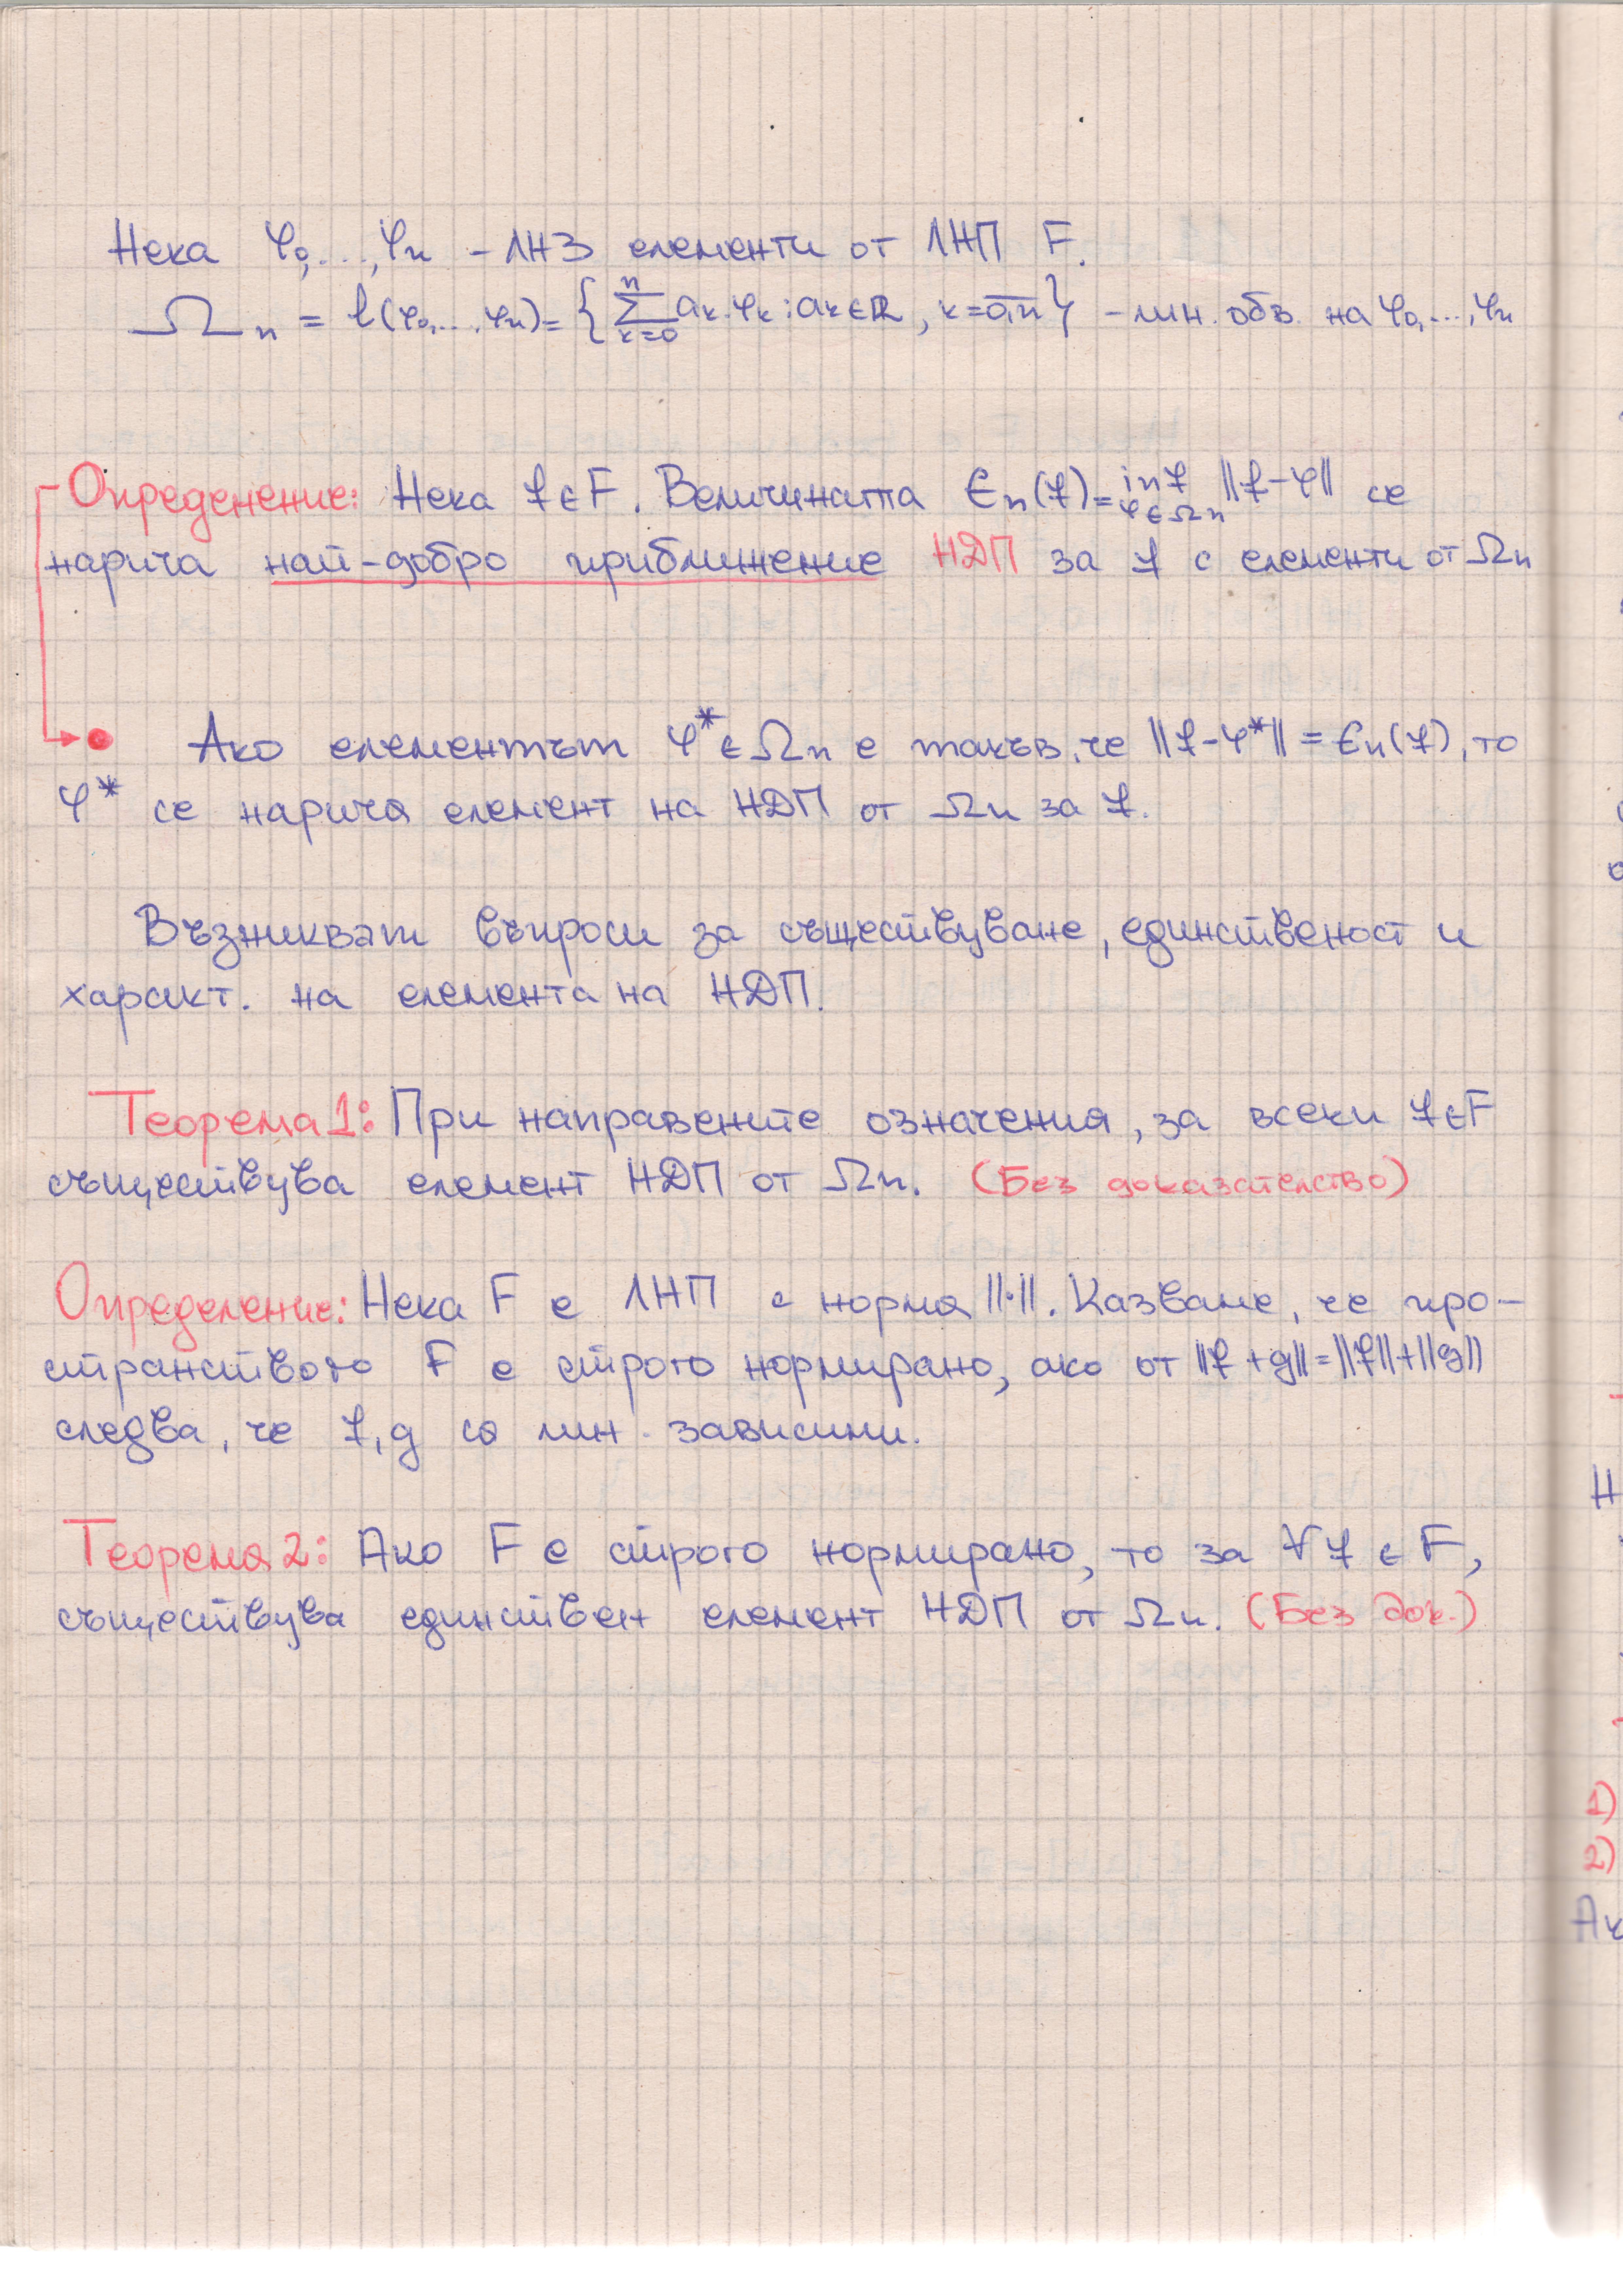 Нека φ₀,...,φₙ - ЛНЗ елементи от ЛНП F.
Ωₙ = ℓ(φ₀,...,φₙ) = { ∑ₖ₌₀ⁿ aₖ.φₖ : aₖ ∈ ℝ, k=0,n̅ } - лин. обв. на φ₀,...,φₙ
Определение: Нека f ∈ F. Величината Eₙ(f) = inf_{φ∈Ωₙ} ||f-φ|| се
нарича най-добро приближение НДП за f с елементи от Ωₙ
Ако елементът φ* ∈ Ωₙ е такъв, че ||f-φ*|| = Eₙ(f), то
φ* се нарича елемент на НДП от Ωₙ за f.
Възникват въпроси за съществуване, единственост и
характ. на елемента на НДП.
Теорема 1: При направените означения, за всеки f ∈ F
съществува елемент НДП от Ωₙ. (Без доказателство)
Определение: Нека F е ЛНП с норма ||·||. Казваме, че про-
странството F е строго нормирано, ако от ||f+g||=||f||+||g||
следва, че f, g са лин. зависими.
Теорема 2: Ако F е строго нормирано, то за ∀ f ∈ F,
съществува единствен елемент НДП от Ωₙ. (Без док.)
1)
2)